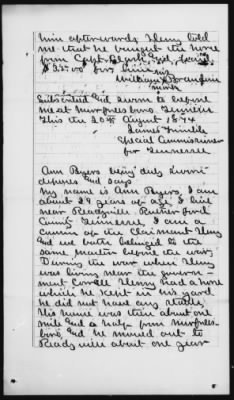 him afterwards Henry told
me that he bought the horse
from Capt Clark and paid
$35.00 for him
his
William Brandon
mark
Subscribed and sworn to before
me at Murfreesboro Tennessee
this the 20th August 1874
James Trimble
Special Commissioner
for Tennessee
Ann Byers being duly sworn
deposes and says
My name is Ann Byers, I am
about 29 years of age I live
near Readyville Rutherford
County Tennessee I am a
cousin of the Claimant Henry
and we both belonged to the
same master before the war,
During the war when Henry
was living near the govern-
ment Corrall Henry had a horse
which he kept in his yard
he did not have any stable,
His house was then about one
mile and a half from Murfrees-
boro and he moved out to
Readyville about one year